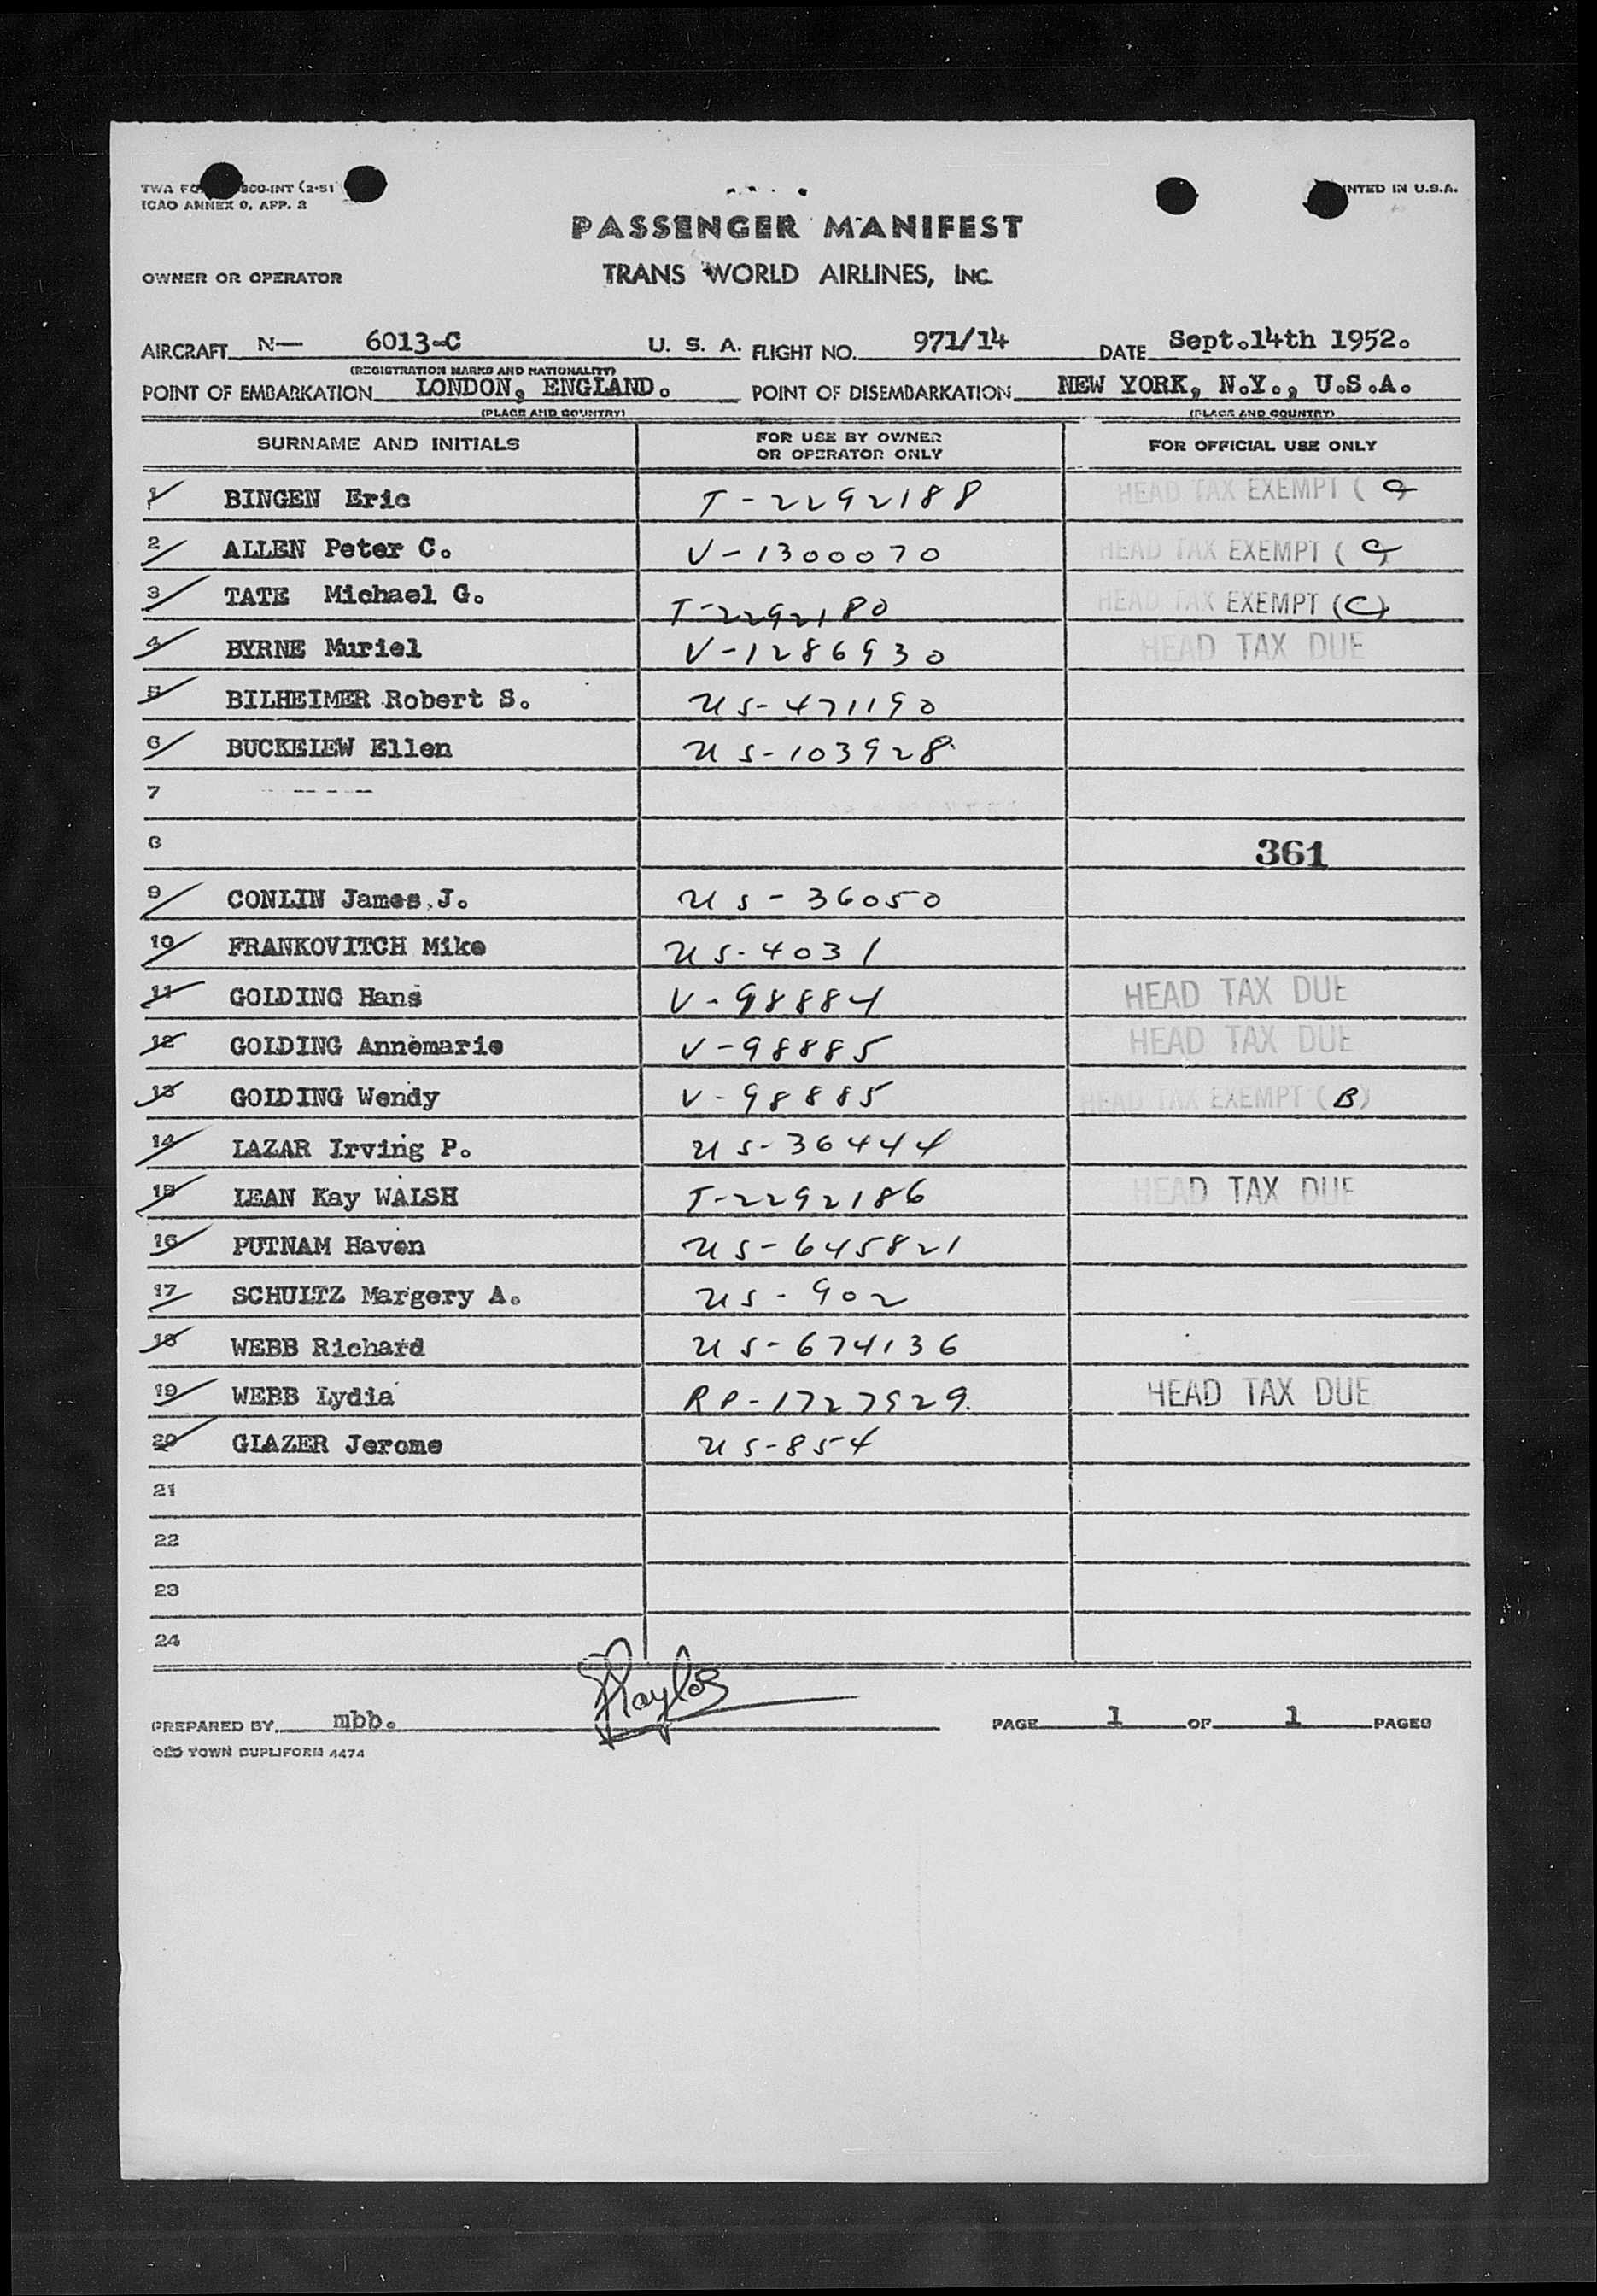 TWA FO 800-INT (2-51
ICAO ANNEX 9, APP. 2
INTED IN U.S.A.
PASSENGER MANIFEST
OWNER OR OPERATOR TRANS WORLD AIRLINES, INC.
AIRCRAFT N— 6013-C U. S. A. FLIGHT NO. 971/14 DATE Sept.14th 1952.
(REGISTRATION MARKS AND NATIONALITY)
POINT OF EMBARKATION LONDON, ENGLAND. POINT OF DISEMBARKATION NEW YORK, N.Y., U.S.A.
(PLACE AND COUNTRY) (PLACE AND COUNTRY)
SURNAME AND INITIALS FOR USE BY OWNER OR OPERATOR ONLY FOR OFFICIAL USE ONLY
1 BINGEN Eric T-2292188 HEAD TAX EXEMPT ( C
2 ALLEN Peter C. V-1300070 HEAD TAX EXEMPT ( C )
3 TATE Michael G. T-2292180 HEAD TAX EXEMPT (C)
4 BYRNE Muriel V-1286930 HEAD TAX DUE
5 BILHEIMER Robert S. US-471190
6 BUCKEIEW Ellen US-103928
7
8 361
9 CONLIN James J. US-36050
10 FRANKOVITCH Mike US-4031
11 GOLDING Hans V-98884 HEAD TAX DUE
12 GOLDING Annemarie V-98885 HEAD TAX DUE
13 GOLDING Wendy V-98885 HEAD TAX EXEMPT (B)
14 LAZAR Irving P. US-36444
15 LEAN Kay WALSH T-2292186 HEAD TAX DUE
16 PUTNAM Haven US-645821
17 SCHULTZ Margery A. US-902
18 WEBB Richard US-674136
19 WEBB Lydia RP-1727929. HEAD TAX DUE
20 GLAZER Jerome US-854
21
22
23
24
PREPARED BY mbb. PAGE 1 OF 1 PAGES
OLD TOWN DUPLIFORM 4474